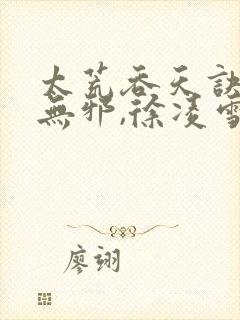 太荒吞天訣
無邪,徐凌雪
廖翊